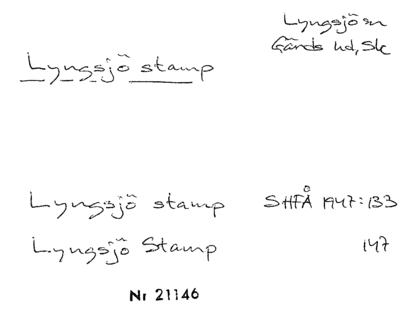 Lyngsjö sn
Gärds hd, Sk
Lyngsjö stamp
Lyngsjö stamp SHFÅ 1947:133
Lyngsjö Stamp 147
Nr 21146